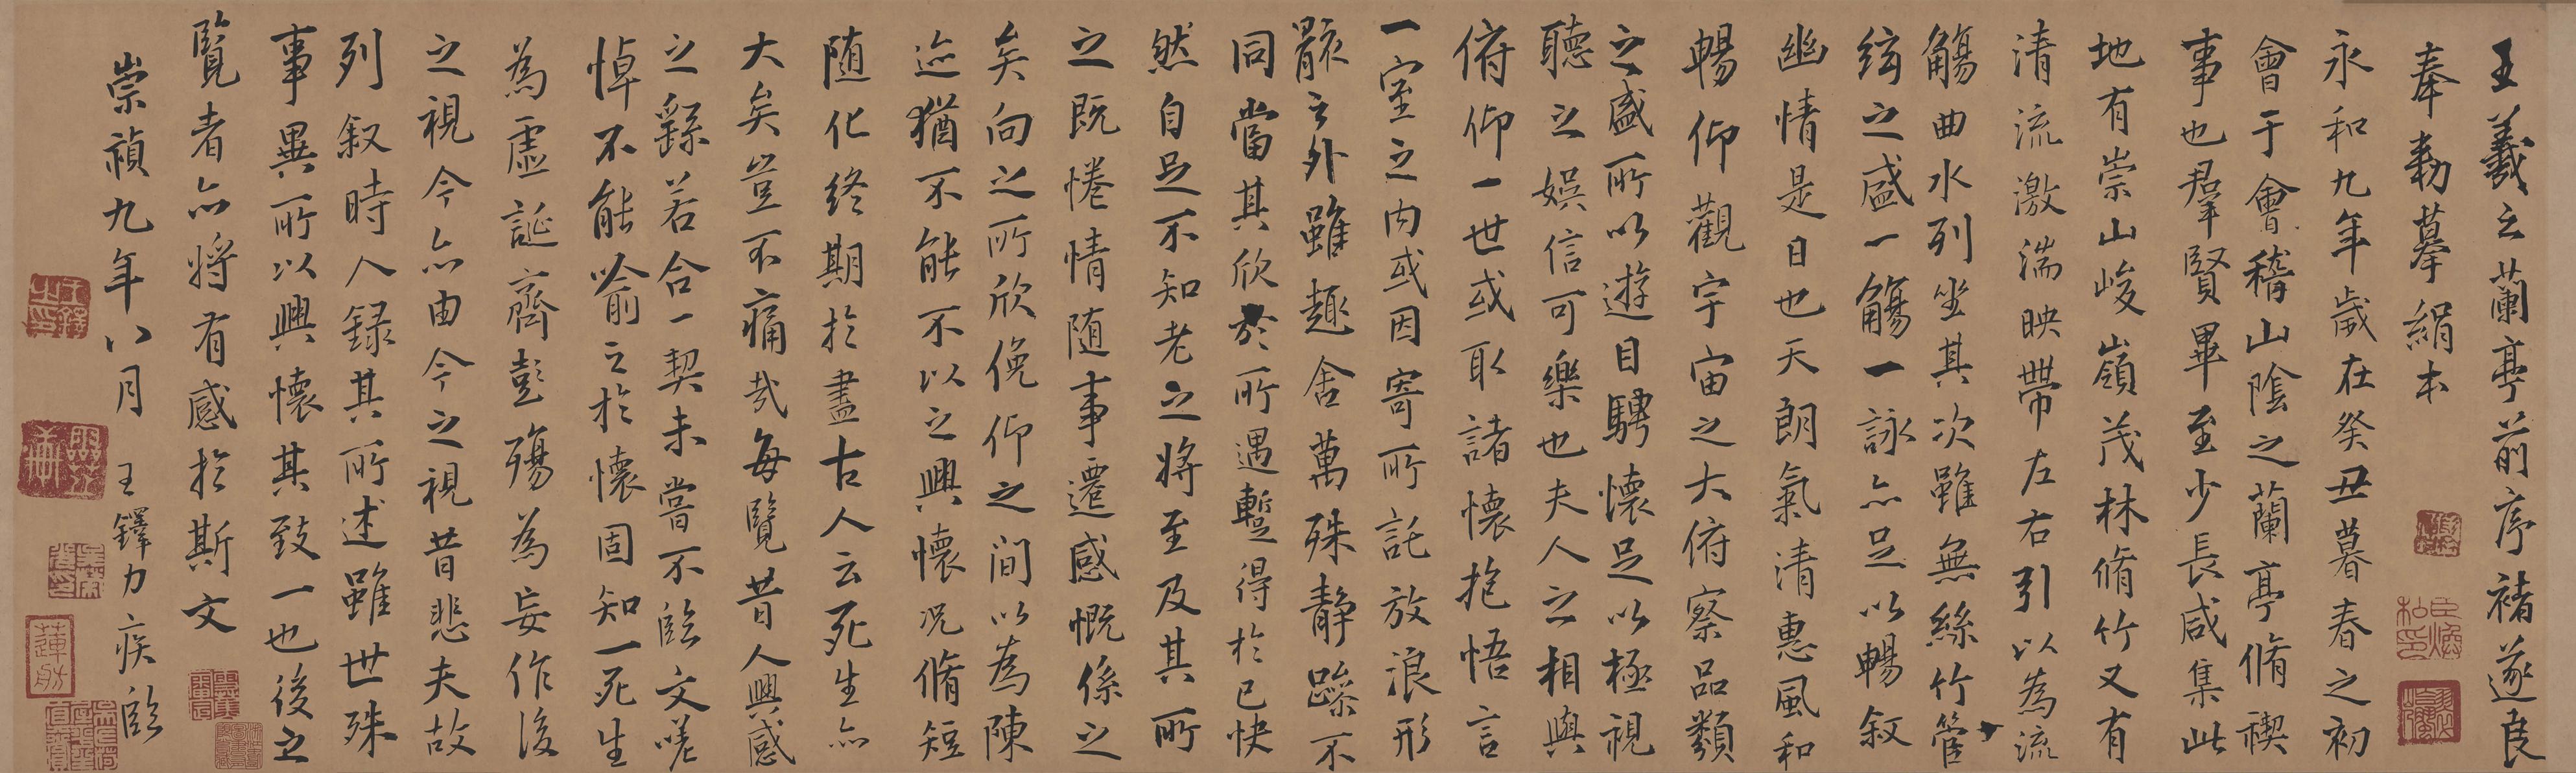 王羲之蘭亭前序褚遂良
奉勅摹絹本
永和九年歲在癸丑暮春之初
會于會稽山陰之蘭亭脩禊
事也羣賢畢至少長咸集此
地有崇山峻嶺茂林脩竹又有
清流激湍映帶左右引以為流
觴曲水列坐其次雖無絲竹管
絃之盛一觴一詠亦足以暢叙
幽情是日也天朗氣清惠風和
暢仰觀宇宙之大俯察品類
之盛所以遊目騁懷足以極視
聽之娛信可樂也夫人之相與
俯仰一世或取諸懷抱悟言
一室之內或因寄所託放浪形
骸之外雖趣舍萬殊静躁不
同當其欣於所遇蹔得於己快
然自足不知老之將至及其所
之既惓情随事遷感慨係之
矣向之所欣俛仰之間以為陳
迹猶不能不以之興懷況脩短
随化終期於盡古人云死生亦
大矣豈不痛哉每覽昔人興感
之繇若合一契未嘗不臨文嗟
悼不能喻之於懷固知一死生
為虛誕齊彭殤為妄作後
之視今亦由今之視昔悲夫故
列叙時人録其所述雖世殊
事異所以興懷其致一也後之
覽者亦將有感於斯文
崇禎九年八月 王鐸力疾臨